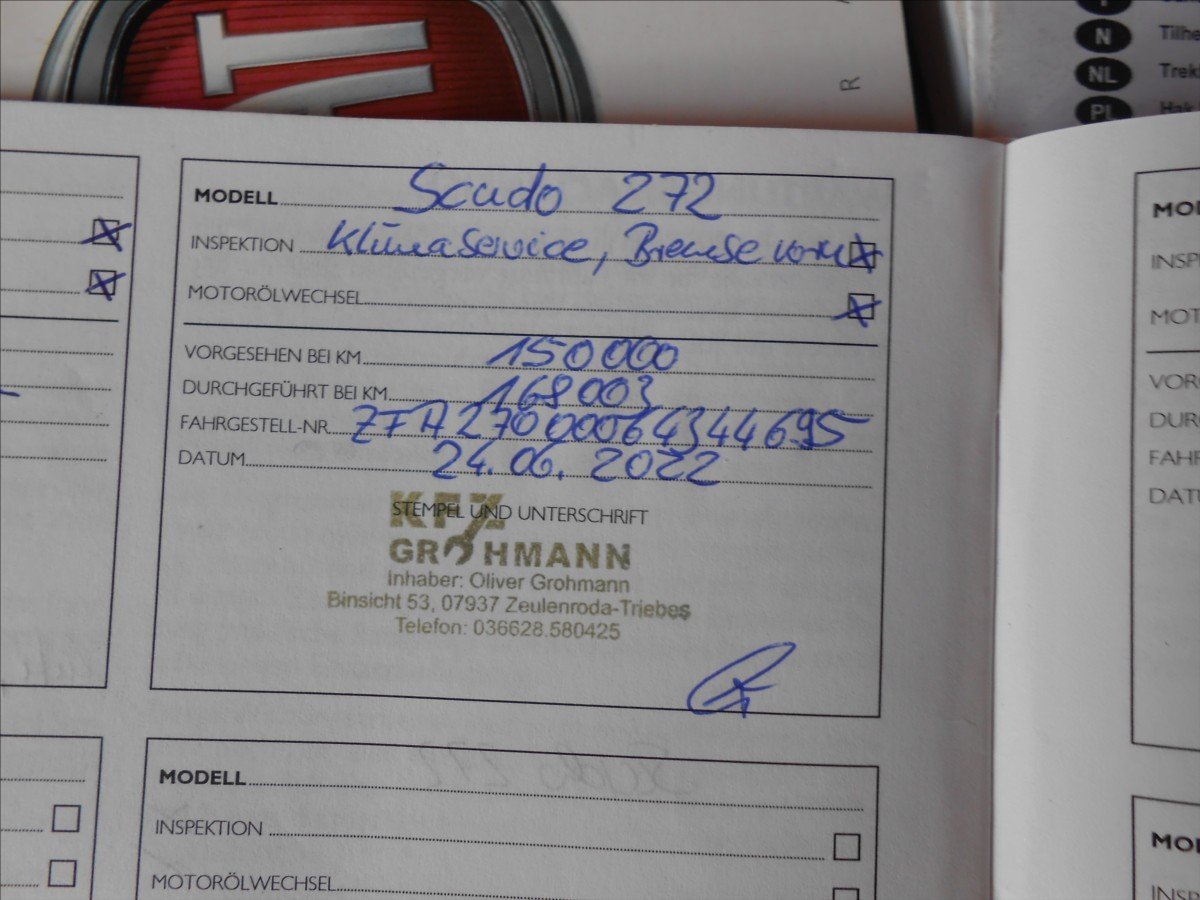 N Tilhe
NL Trek
PL Hak
R
MODELL Scudo 272
INSPEKTION Klimaservice, Bremse vorn
MOTORÖLWECHSEL
VORGESEHEN BEI KM 150000
DURCHGEFÜHRT BEI KM 168003
FAHRGESTELL-NR. ZFA27000064344695
DATUM 24.06.2022
STEMPEL UND UNTERSCHRIFT
KFZ
GROHMANN
Inhaber: Oliver Grohmann
Binsicht 53, 07937 Zeulenroda-Triebes
Telefon: 036628.580425
MODELL
INSPEKTION
MOTORÖLWECHSEL
MOD
INSP
MOT
VOR
DUR
FAHR
DATU
MOD
INSP